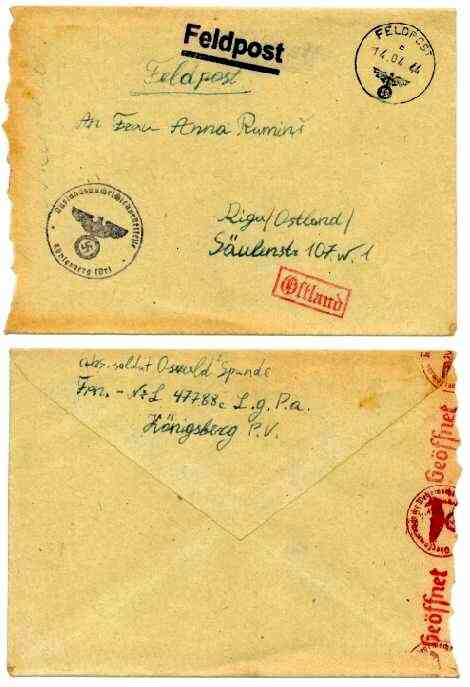 Feldpost
FELDPOST
c
14.04.44
Feldpost
An Frau Anna Rumini
Riga/Ostland/
Säulenstr 107.W.1
Ostland
Abs. Soldat Oswald Spunde
Fpn.-Nr L 47788c L.g.P.a.
Königsberg P.V.
Geöffnet
Geöffnet